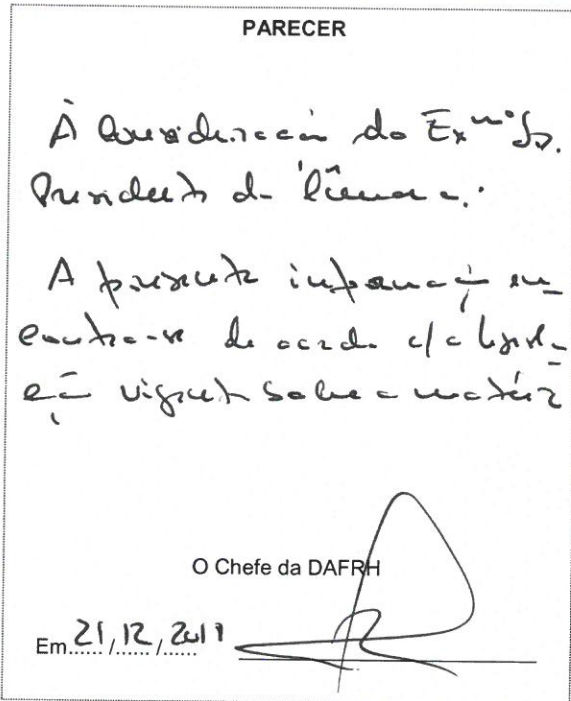 PARECER
À Consideração do Exmº Sr.
Presidente da Câmara.
A presente informação en_
contra-se de acordo c/ a legisl_
ação vigente sobre a matéria
O Chefe da DAFRH
Em 21/12/